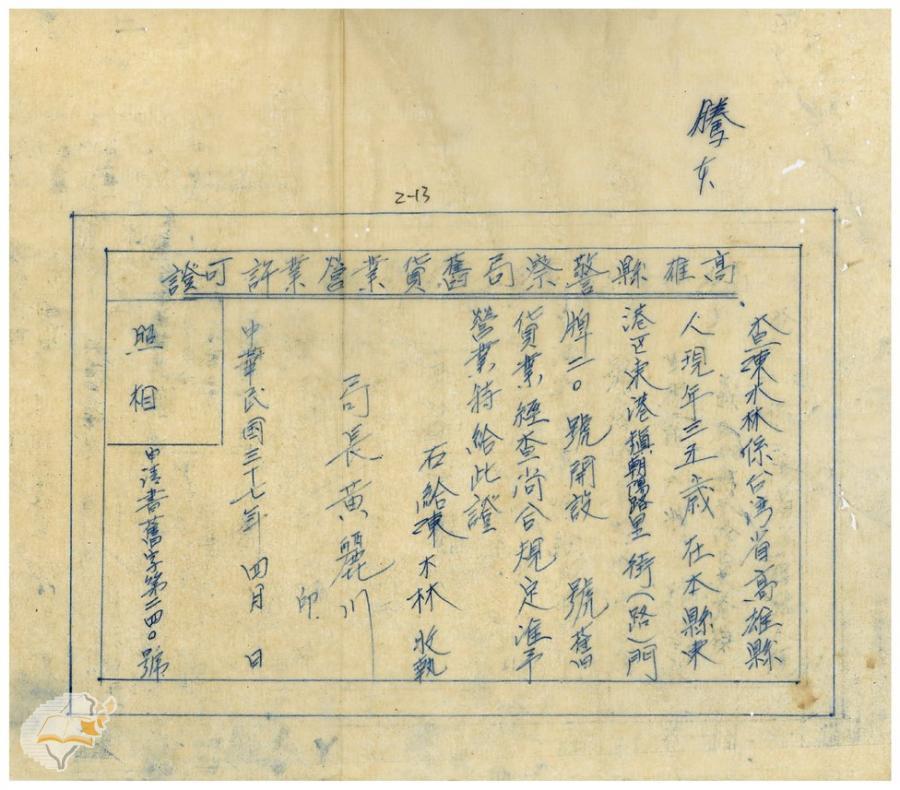 謄本
2-13
高雄縣警察局舊貨業營業許可證
查陳水林係台湾省高雄縣
人現年三五歲在本縣東
港区東港鎮朝陽路里街(路)門
牌二〇號開設 號舊
貨業經查尚合規定准予
營業特給此證
右給陳木林收執
局長黃麗川
印
中華民國三十七年 四月 日
照相
申請書舊字第二四〇號